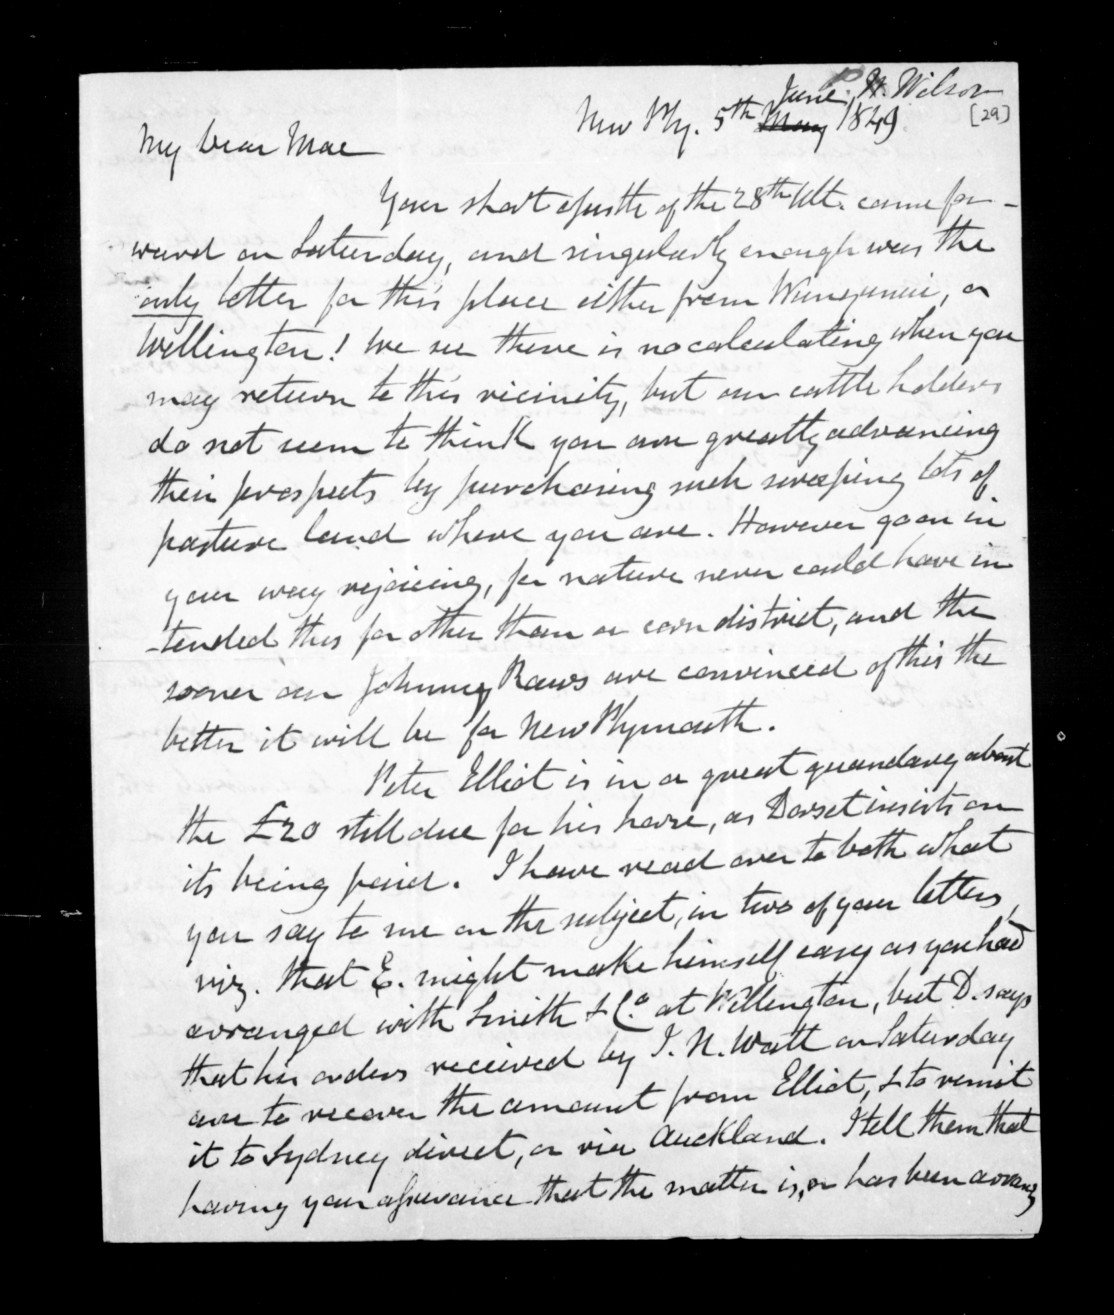 June. H. Wilson
New Ply. 5th May 1849 [29]
My Dear Mac
Your short epistle of the 28th Ult. came for-
ward on Saturday, and singularly enough was the
only letter for this place either from Wanganui, or
Wellington! We see there is no calculating when you
may return to this vicinity, but our cattle holders
do not seem to think you are greatly advancing
their prospects by purchasing such sweeping lots of
pasture land where you are. However go on in
your way rejoicing, for nature never could have in
-tended this for other than a corn district, and the
sooner our Johnny Raws are convinced of this the
better it will be for New Plymouth.
Peter Elliot is in a great quandary about
the £20 still due for his horse, as Dorset insists on
its being paid. I have read over to both what
you say to me on the subject, in two of your letters,
viz. that E. might make himself easy as you had
arranged with Smith & Co. at Wellington, but D. says
that his orders received by I. N. Watt on Saturday
are to recover the amount from Elliot, & to remit
it to Sydney direct, or via Auckland. I tell them that
having your assurance that the matter is, or has been arrang